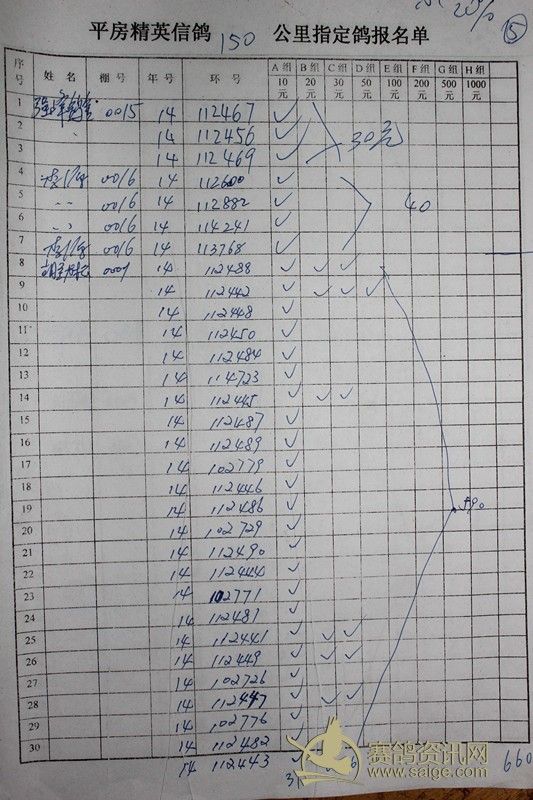 20%
⑤
平房精英信鸽 150 公里指定鸽报名单
序号 姓名 棚号 年号 环号 A组 B组 C组 D组 E组 F组 G组 H组
10元 20元 30元 50元 100元 200元 500元 1000元
1 0015 14 112467 ✓
2 14 112456 ✓ 30元
3 14 112469 ✓
4 0016 14 112600 ✓
5 0016 14 112882 ✓ 40
6 0016 14 114241 ✓
7 0016 14 113768 ✓
8 0009 14 112488 ✓ ✓ ✓
9 14 112442 ✓ ✓ ✓ ✓
10 14 112448 ✓
11 14 112450 ✓
12 14 112484 ✓
13 14 114723 ✓
14 14 112445 ✓ ✓ ✓
15 14 112487 ✓
16 14 112489 ✓
17 14 102779 ✓
18 14 112446 ✓
19 14 112486 ✓ 590
20 14 102729 ✓
21 14 112490 ✓
22 14 112444 ✓
23 14 102771 ✓
24 14 112481 ✓
25 14 112441 ✓ ✓ ✓
26 14 112449 ✓ ✓ ✓
27 14 102726 ✓
28 14 112447 ✓ ✓ ✓
29 14 102776 ✓
30 14 112482 ✓
14 112443 ✓
660
赛鸽资讯网
www.saige.com